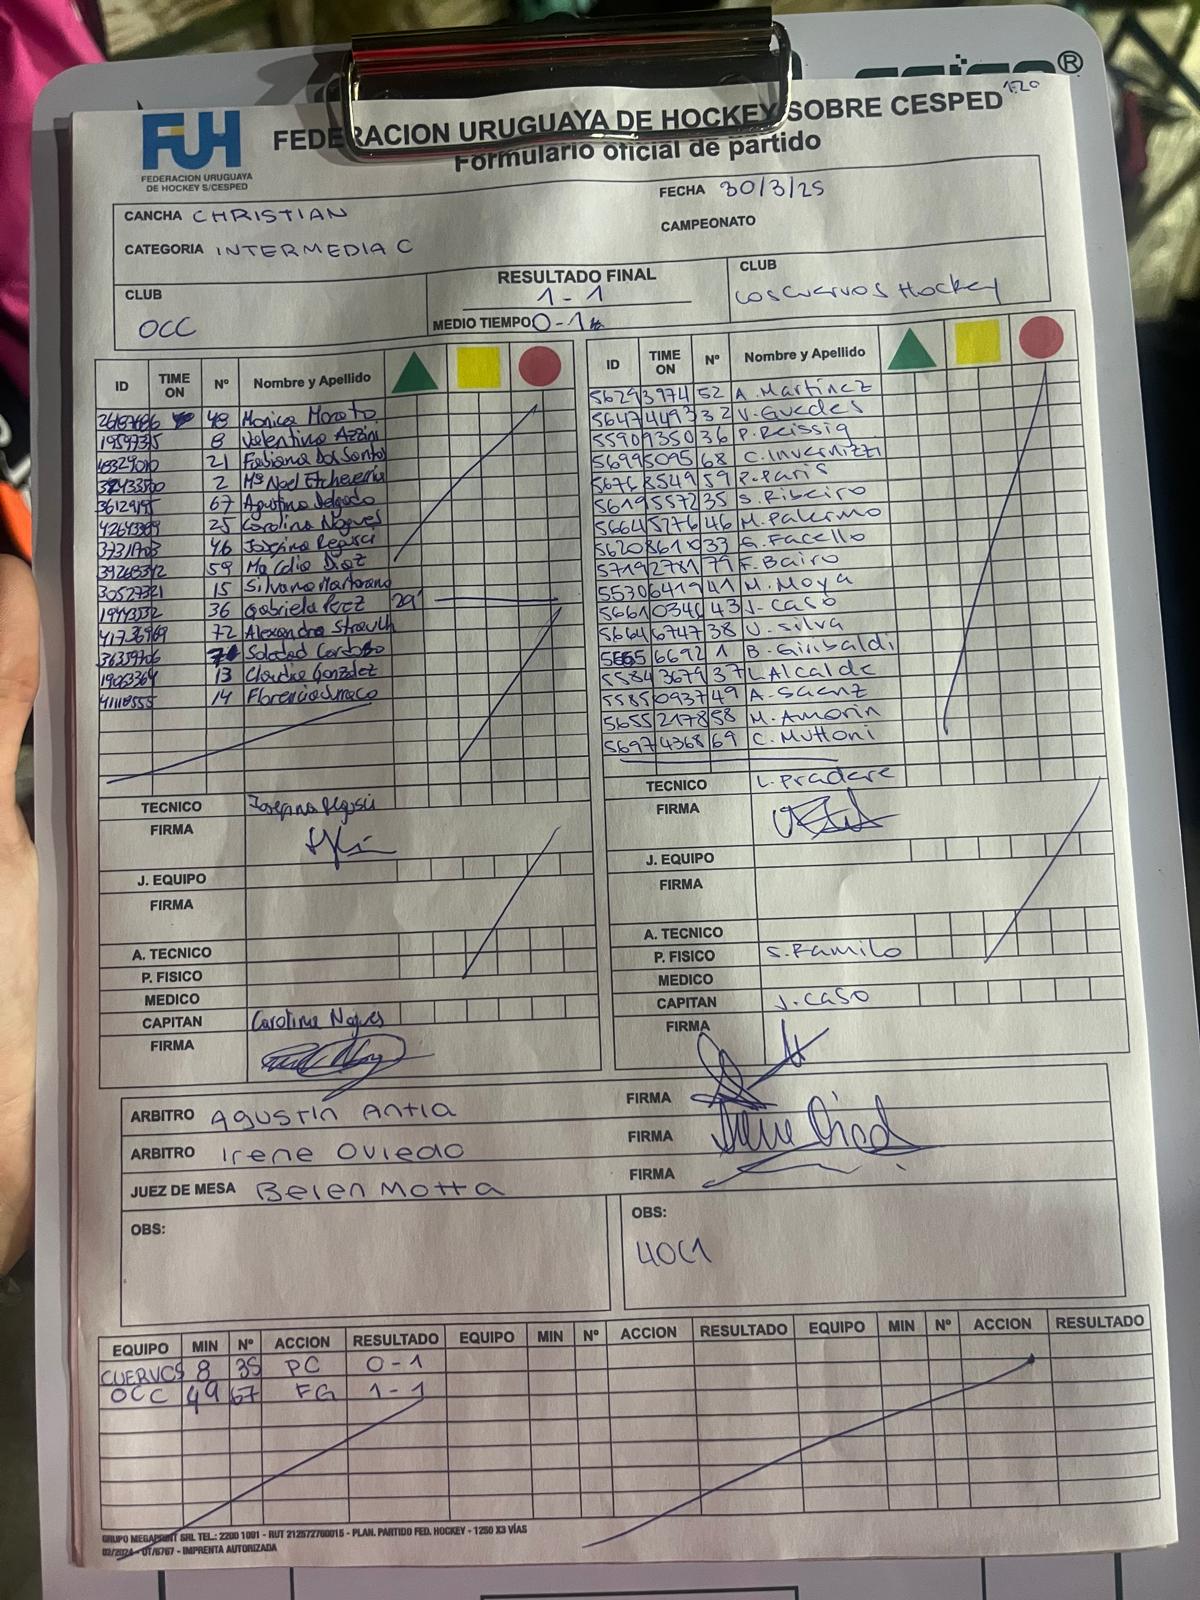 1:20
FUH
FEDERACION URUGUAYA
DE HOCKEY S/CESPED
FEDERACION URUGUAYA DE HOCKEY SOBRE CESPED
Formulario oficial de partido
CANCHA CHRISTIAN
FECHA 30/3/25
CATEGORIA INTERMEDIA C
CAMPEONATO
CLUB
OCC
RESULTADO FINAL
1 - 1
MEDIO TIEMPO 0-1
CLUB
Los Cuervos Hockey
ID TIME ON Nº Nombre y Apellido
48 Monica Morato
8 Valentina Azzini
21 Fabiana Dos Santos
2 Mª Noel Etcheverria
67 Agustina Delgado
25 Carolina Nogues
46 Josefina Regusci
59 Ma Celia Diaz
30527321 15 Silvana Martorano
36 Gabriela Perez 29'
72 Alexandra Strauch
Soledad Cardozo
13 Claudia Gonzalez
41118555 14 Florencia
TECNICO Josefina Regusci
FIRMA
J. EQUIPO
FIRMA
A. TECNICO
P. FISICO
MEDICO
CAPITAN Carolina Nogues
FIRMA
ID TIME ON Nº Nombre y Apellido
56293974 52 A. Martinez
56474493 32 V. Guedes
55909350 36 P. Reissig
56995095 68 C. Invernizzi
56768549 59 P. Paris
56195572 35 S. Ribeiro
56645776 46 M. Palermo
33 G. Facello
57192781 79 F. Bairo
55306419 41 M. Moya
56610346 43 J. Caso
56646747 38 U. Silva
1 B. Giribaldi
55843679 37 L. Alcalde
55850937 49 A. Saenz
56552178 58 M. Amorin
56974368 69 C. Muttoni
TECNICO L. Pradere
FIRMA
J. EQUIPO
FIRMA
A. TECNICO
P. FISICO S. Ramilo
MEDICO
CAPITAN J. Caso
FIRMA
ARBITRO Agustin Antia FIRMA
ARBITRO Irene Oviedo FIRMA
JUEZ DE MESA Belen Motta FIRMA
OBS:
OBS:
EQUIPO MIN Nº ACCION RESULTADO EQUIPO MIN Nº ACCION RESULTADO EQUIPO MIN Nº ACCION RESULTADO
CUERVOS 8 35 PC 0-1
OCC 49 67 FG 1-1
GRUPO MEGAPRINT SRL TEL.: 2200 1091 - RUT 212572700015 - PLAN. PARTIDO FED. HOCKEY - 1250 X3 VÍAS
02/2024 - UT/6767 - IMPRENTA AUTORIZADA